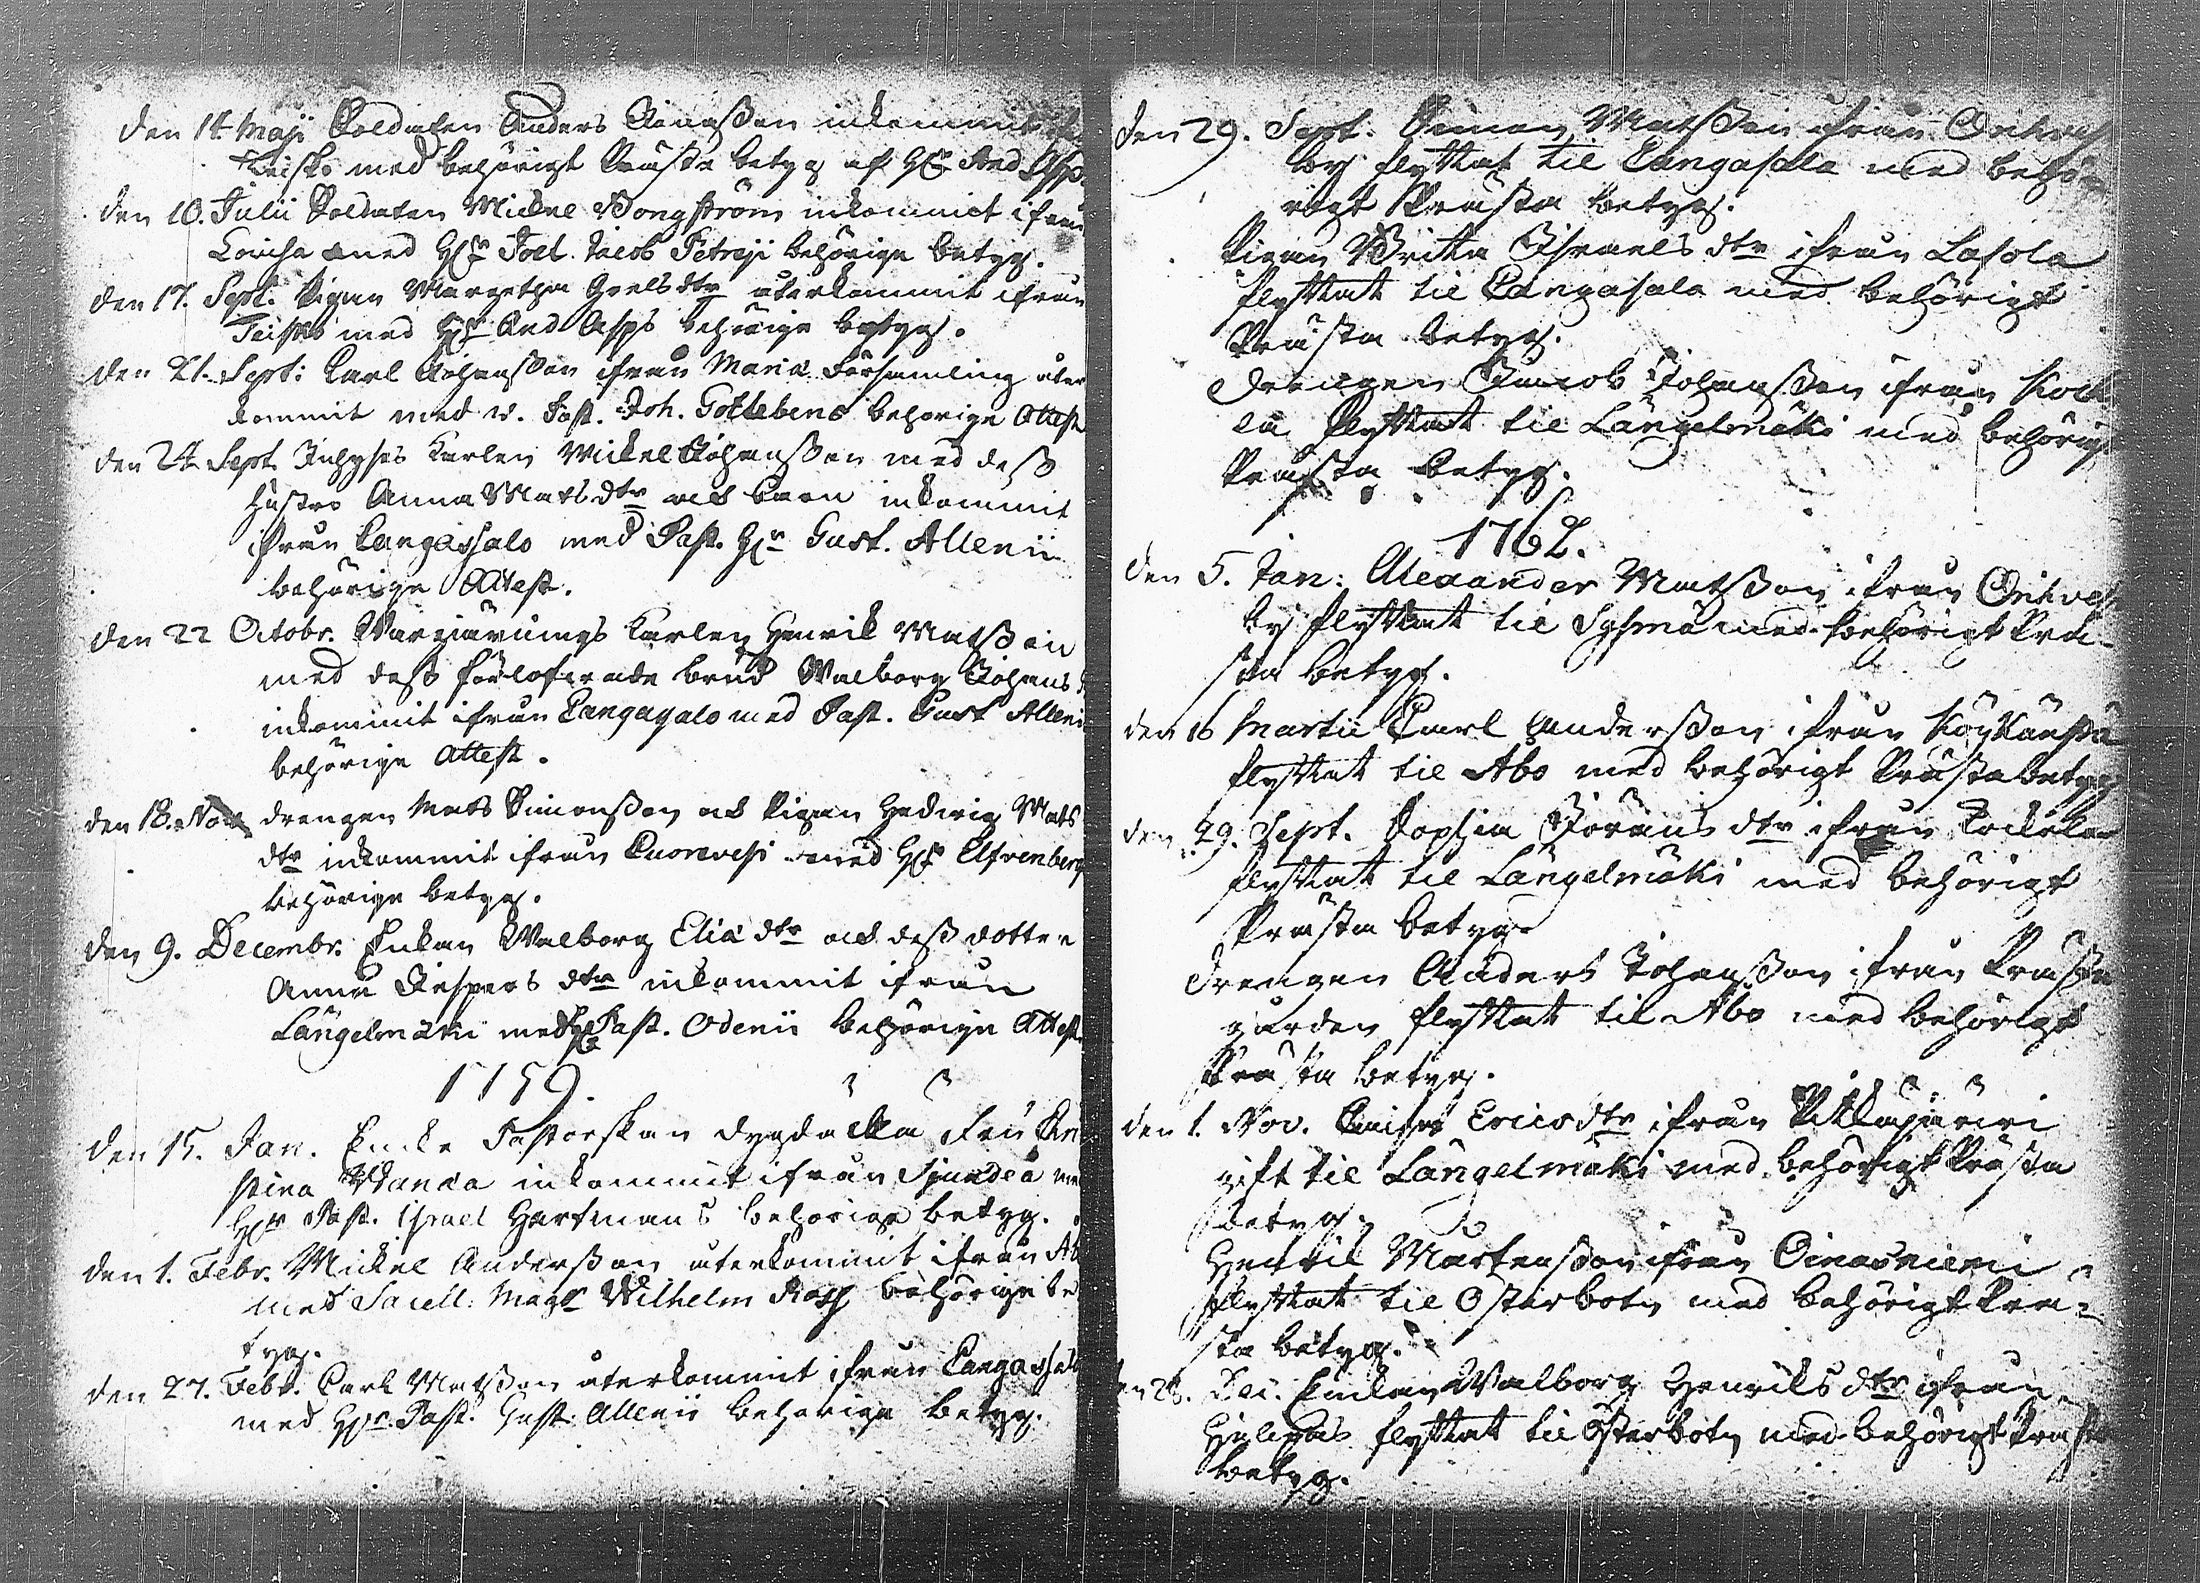 den 14 Maji Soldaten Anders Jönasson inkommit
Teisko med behörigt Prästa betyg af Hr And Asp
den 10. Julii Soldaten Mickel Bongström inkommit ifrån
Lovisa med Hr Joel. Jacob Petreji behörige betyg.
den 17. Sept. Pigan Margetha Grels dtr återkommit ifrån
Teisko med Hr And Asps behörige betyg.
den 21. Sept: Carl Johansson ifrån Mariæ Församling åter
kommit med v. Past. Joh. Gottlebens behörige Attest
den 24 Sept. Inhyses Karlen Mickel Johansson med dess
Hustro Anna Mats dtr och barn inkommit
ifrån Cangassalo med Past. Hr Gust. Allenii
behörige Attest.
den 22 Octobr. Karlen Henrik Matsson
med dess förlofwade brud Walborg Johans
inkommit ifrån Cangasalo med Past. Gust Alleni
behörige Attest.
den 18. Nov drengen Mats Simonsson och Pigan Hedwig Mats
dtr inkommit ifrån Cuorevesi med Hr Elfvenberg
behörige betyg.
den 9. Decembr. Enkan Walborg Eliæ dtr och dess dotter
Anna Jespers dtr inkommit ifrån
Längelmäki med Hr Past. Odenii behörige Attest.
1759.
den 15. Jan. Enke Pastorskan dygdädla Fru Chri
stina Wanæa inkommit ifrån Sjundeå me
Hr Past. Israel Hartmans behörige betyg.
den 1. Febr. Mickel Andersson återkommit ifrån Åb
med Sacell: Magr Wilhelm Ross behörige be
tyg.
den 27. Febr. Carl Matsson återkommit ifrån Cangassalo
med Hr Past. Gust. Allenii behörige betyg.
den 29. Sept. Simon Matsson ifrån Orihves
by flyttat til Cangasala med behö
rigt Prästa betyg.
Pigan Brita Israels dtr ifrån Lasola
flyttat til Cangasala med behörigt
Prästa betyg.
Drengen Jacob Johansson ifrån
la flyttat til Längelmäki med behörigt
Prästa betyg.
1762.
den 5. Jan: Alexander Matsson ifrån Orihves
by flyttat til Sysmä med behörigt Prä-
sta betyg.
den 16 Martii Carl Andersson ifrån
flyttat til Åbo med behörigt Prästabetyg
den 29. Sept. Sophia Jörans dtr ifrån
flyttat til Längelmäki med behörigt
Prästa betyg
Drengen Anders Johansson ifrån Prästa
gården flyttat til Åbo med behörigt
Prästa betyg.
den 1. Nov. Caisa Erics dtr ifrån Pitkäjärvi
gift til Längelmäki med behörigt Prästa
betyg.
Henril Mårtensson ifrån Oinasniemi
flyttat til Österbotn med behörigt Prä=
sta betyg.
en 28. Dec. Enkan Walborg Henriks dtr ifrån
flyttat til Österbotn med behörigt Prästa
betyg.